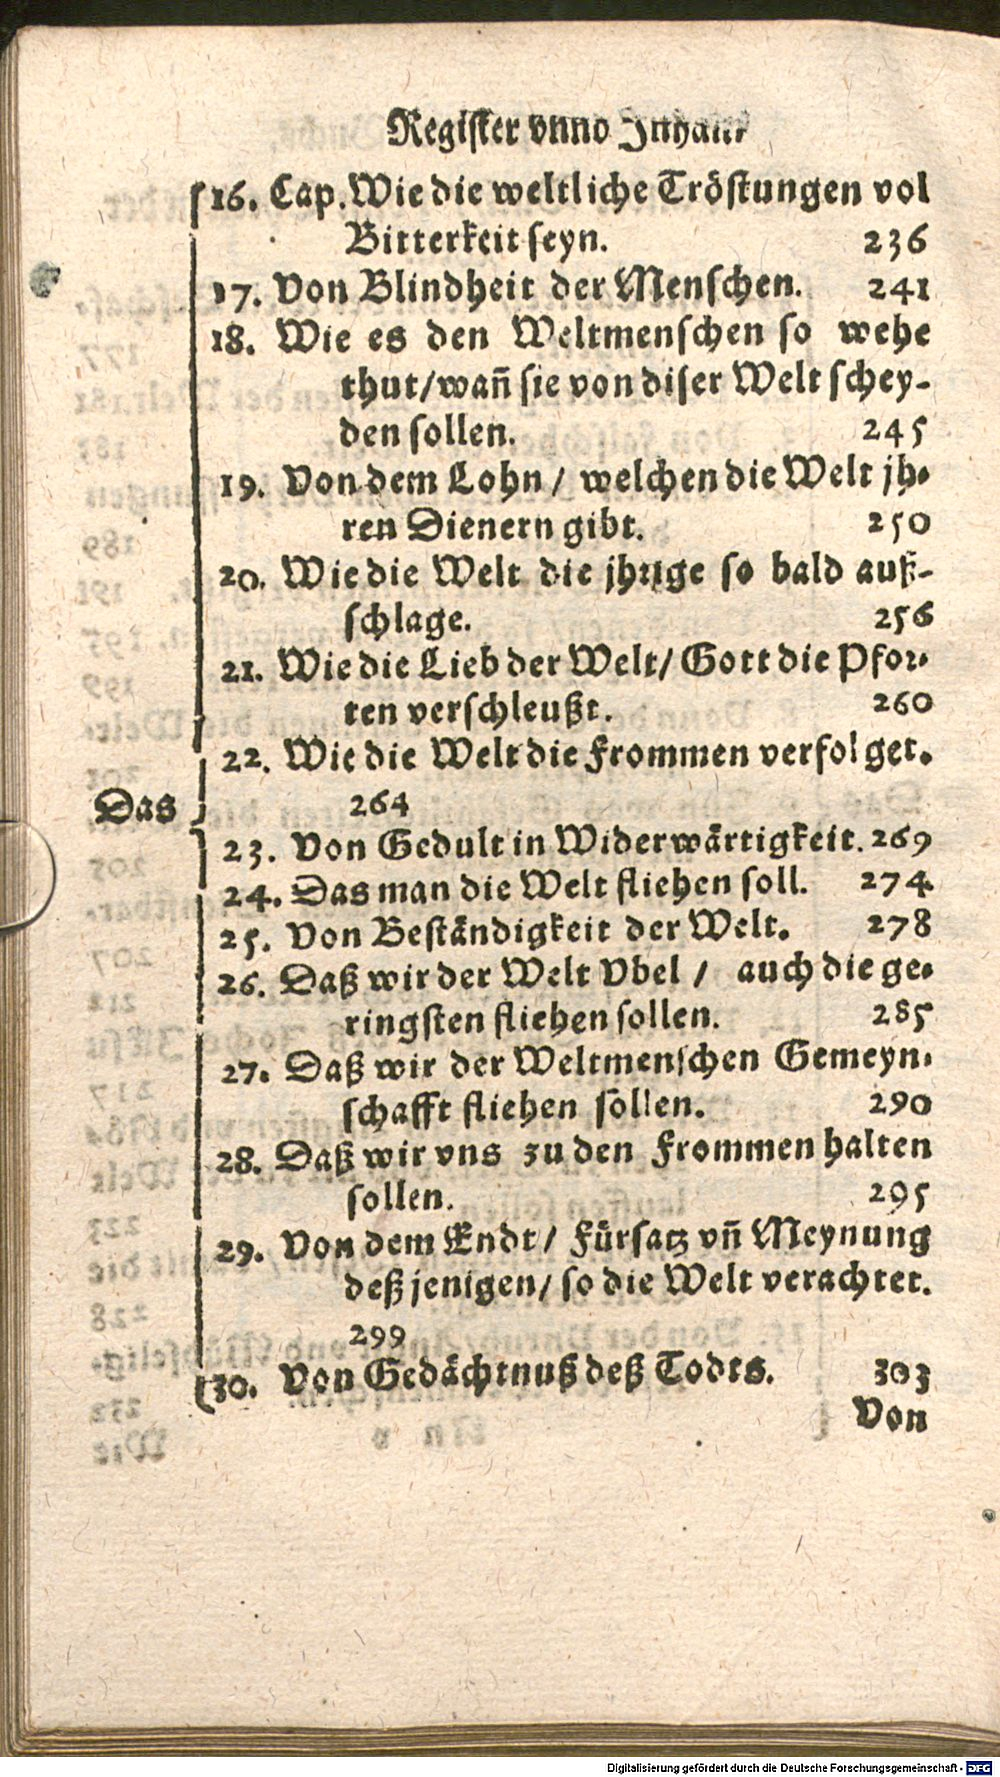 Register vnnd Inhalt
16. Cap. Wie die weltliche Tröstungen vol
Bitterkeit seyn. 236
17. Von Blindheit der Menschen. 241
18. Wie es den Weltmenschen so wehe
thut/wañ sie von diser Welt schey-
den sollen. 245
19. Von dem Lohn / welchen die Welt jh-
ren Dienern gibt. 250
20. Wie die Welt die jhrige so bald auß-
schlage. 256
21. Wie die Lieb der Welt/ Gott die Pfor-
ten verschleußt. 260
22. Wie die Welt die Frommen verfolget.
264
Das
23. Von Gedult in Widerwärtigkeit. 269
24. Das man die Welt fliehen soll. 274
25. Von Beständigkeit der Welt. 278
26. Daß wir der Welt Vbel / auch die ge-
ringsten fliehen sollen. 285
27. Daß wir der Weltmenschen Gemeyn-
schafft fliehen sollen. 290
28. Daß wir vns zu den Frommen halten
sollen. 295
29. Von dem Endt/ Fürsatz vñ Meynung
deß jenigen/ so die Welt verachtet.
299
30. Von Gedächtnuß deß Todts. 303
Von
Digitalisierung gefördert durch die Deutsche Forschungsgemeinschaft - DFG